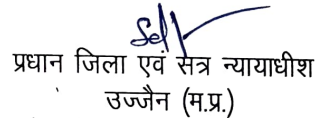 Sd/-
प्रधान जिला एवं सत्र न्यायाधीश
उज्जैन (म.प्र.)